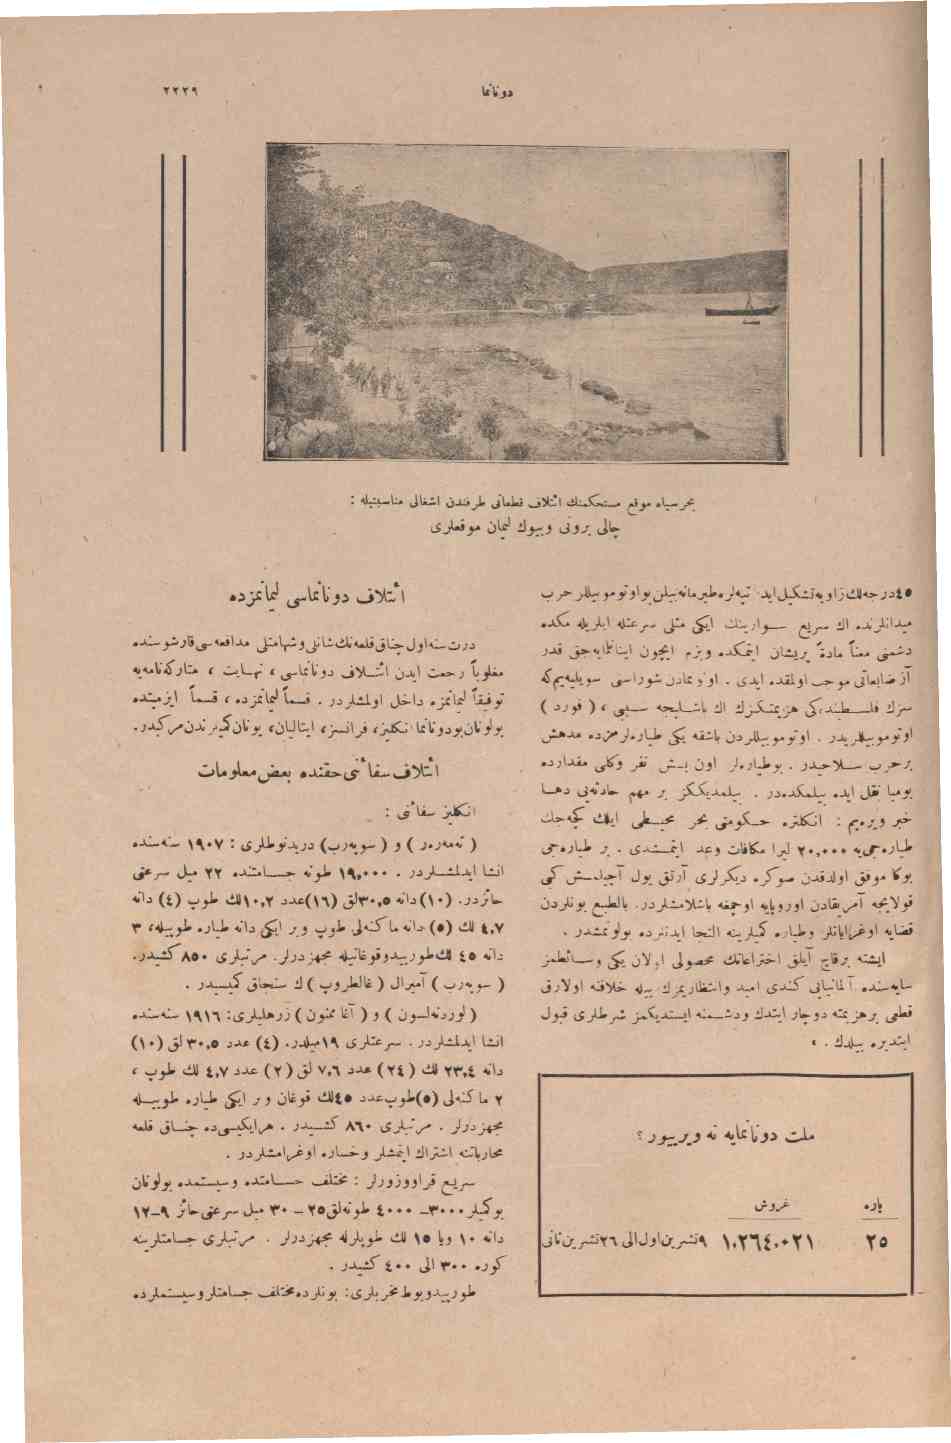 دونانما
٢٢٢٩
بحرسیاه موقع مستحکمنك ائتلاف قطعاتی طرفندن اشغالی مناسبتیله :
چالی برونی وبیوك لیمان موقعلری
٤٥درجه‌لك زاویه تشكیل ایدن تپه‌لره طیرمانه‌بیلن بو اوتوموبیللر حرب
میدانلرنده اك سریع سوارینك ایكی مثلی سرعتله ایلریله مكده
دشمنی معناً مادةً پریشان ایتمكده وبزم ایچون اینانلمایه‌جق قدر
آز ضایعاتی موجب اولمقده ایدی . اونوتمادن شوراسنی سویلیه‌یم‌كه
سزك فلسطینده‌كی هزیمتكزك اك باشلیجه سببی ، ( فورد )
اوتوموبیللریدر . اوتوموبیللردن باشقه یكی طیاره‌لرمزده مدهش
برحرب سلاحیدر . بوطیاره‌لر اون بش نفر وكلی مقدارده
بومبا نقل ایده بیلمكده‌در . بیلمدیككز بر مهم حادثه‌یی دها
خبر ویره‌یم : انكلتره حكومتی بحر محیطی ایلك كچه‌جك
طیاره‌جی‌یه ٢٠,٠٠٠ لیرا مكافات وعد ایتمشدی . بر طیاره‌جی
بوكا موفق اولدقدن صوكره دیكرلری آرتق یول آچیلمش كبی
قولایجه آمریقادن اوروپایه اوچمغه باشلامشلردر. بالطبع بونلردن
قضایه اوغرایانلر وطیاره كمیلرینه التجا ایدنلرده بولونمشدر .
ایشته برقاچ آیلق اختراعاتك محصولی اولان یكی وسائطمز
سایه‌سنده آلمانیایی كندی امید وانتظاریمزك بیله خلافنه اولارق
قطعی برهزیمته دوچار ایتدك ودشمنه ایستدیكمز شرطلری قبول
ایتدیره بیلدك . »
ملت دونانمایه نه ویرییور ؟
پاره
غروش
٢٥
١٠٢٦٤٠٠٢١
٩تشرین اول الی ٢٦تشرین ثانی
ائتلاف دونانماسی لیمانمزده
درت سنه اول چناق قلعه‌نك شانلی وشهامتلی مدافعه‌سی قارشوسنده
مغلوباً رجعت ایدن ائتلاف دونانماسی ، نهایت ، متاركه‌نامه‌یه
توفیقاً لیمانمزه داخل اولمشلردر . قسماً لیمانمزده ، قسماً ازمیتده
بولونان بودونانما انكلیز، فرانسز، ایتالیان، یونان كمیلرندن مركبدر.
ائتلاف سفائنی حقنده بعض معلومات
انكلیز سفائنی :
( ته‌مه‌رر ) و ( سوپه‌رب) دریدنوطلری : ١٩٠٧ سنه‌سنده
انشا ایدلمشلردر . ١٩,٠٠٠ طونه جسامتنده ٢٢ میل سرعتی
حائزدر. (١٠) دانه ٣٠,٥لق (١٦)عدد ١٠,٢لك طوپ (٤) دانه
٤,٧ لك (٥) دانه ماكنه‌لی طوپ وبر ایكی دانه طیاره طوپیله، ٣
دانه ٤٥ لك طورپیدوقوغانیله مجهزدرلر. مرتبلری ٨٥٠ كشیدر.
( سوپه‌رب ) آمیرال ( غالطروپ ) ك سنجاق كمیسیدر .
( لوردنه‌لسون ) و ( آغاممنون ) زرهلیلری: ١٩١٦ سنه‌سنده
انشا ایدلمشلردر . سرعتلری ١٩میلدر. (٤) عدد ٣٠,٥ لق (١٠)
دانه ٢٣,٤ لك (٢٤) عدد ٧,٦ لق (٢) عدد ٤,٧ لك طوپ ،
٢ ماكنه‌لی (٥)طوپ عدد ٤٥لك قوغان وبر ایكی طیاره طوپیله
مجهزدرلر . مرتبلری ٨٦٠ كشیدر . هرایكیسی‌ده چناق قلعه
محارباتنه اشتراك ایتمشلر وخساره اوغرامشلردر .
سریع قراووزورلر : مختلف جسامتده وسیستمده بولونان
بوكمیلر ٣٠٠٠– ٤٠٠٠ طونه‌لق ٢٥ – ٣٠ میل سرعتی حائز ٩–١٢
دانه ١٠ ویا ١٥ لك طوپلرله مجهزدرلر . مرتبلری جسامتلرینه
كوره ٣٠٠ الی ٤٠٠ كشیدر .
طورپیدوبوط مخربلری: بونلرده مختلف جسامتلر وسیستملرده